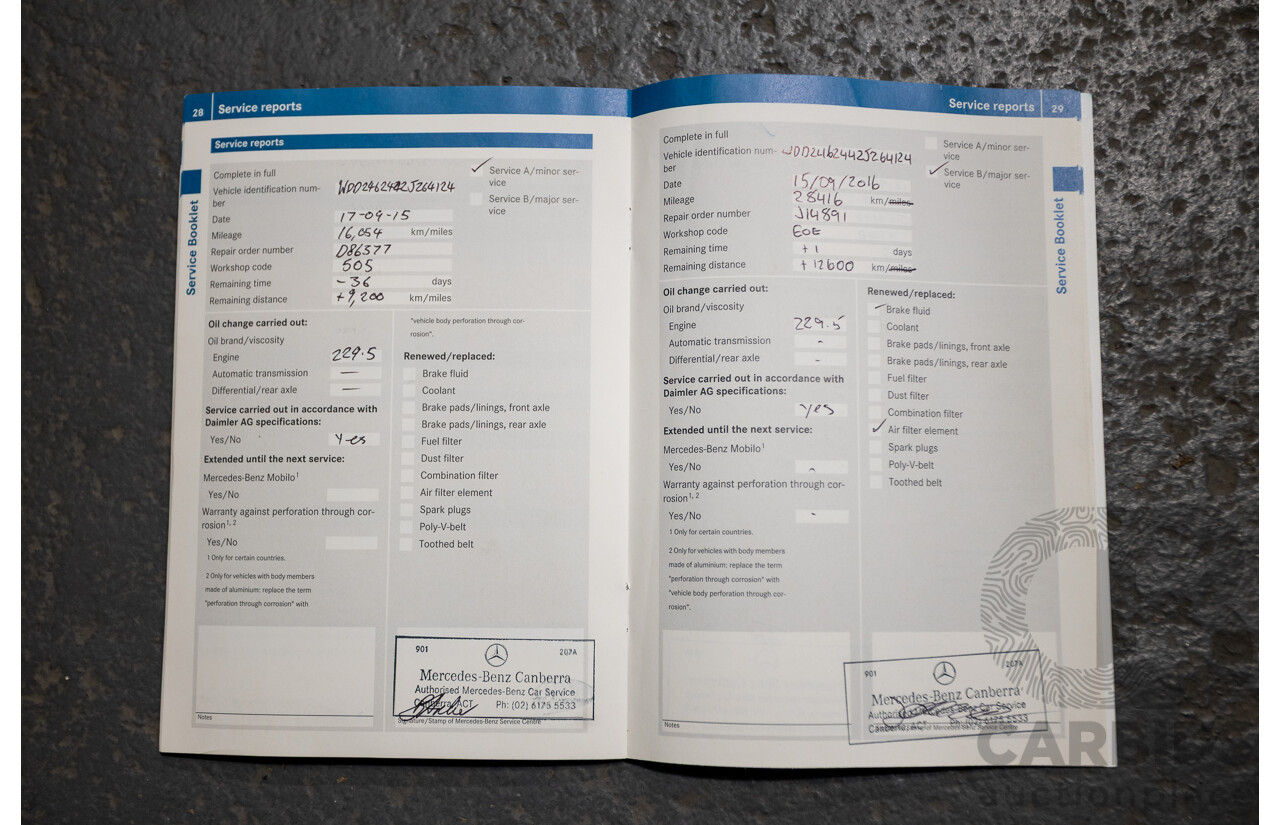 28 Service reports
Service reports
Complete in full
Vehicle identification num-
ber
WDD2462442J264124
Date 17-09-15
Mileage 16,054 km/miles
Repair order number D86377
Workshop code 505
Remaining time -36 days
Remaining distance +9,200 km/miles
✓ Service A/minor ser-
vice
Service B/major ser-
vice
Service Booklet
Oil change carried out:
Oil brand/viscosity
Engine 229.5
Automatic transmission —
Differential/rear axle —
Service carried out in accordance with
Daimler AG specifications:
Yes/No Yes
Extended until the next service:
Mercedes-Benz Mobilo1
Yes/No
Warranty against perforation through cor-
rosion1, 2
Yes/No
1 Only for certain countries.
2 Only for vehicles with body members
made of aluminium: replace the term
"perforation through corrosion" with
"vehicle body perforation through cor-
rosion".
Renewed/replaced:
Brake fluid
Coolant
Brake pads/linings, front axle
Brake pads/linings, rear axle
Fuel filter
Dust filter
Combination filter
Air filter element
Spark plugs
Poly-V-belt
Toothed belt
Notes
901 207A
Mercedes-Benz Canberra
Authorised Mercedes-Benz Car Service
Canberra ACT Ph: (02) 6175 5533
Signature/Stamp of Mercedes-Benz Service Centre
Service reports 29
Complete in full
Vehicle identification num-
ber
WDD2462442J264124
Date 15/09/2016
Mileage 28416 km/miles
Repair order number J14891
Workshop code EOE
Remaining time +1 days
Remaining distance +12600 km/miles
Service A/minor ser-
vice
✓ Service B/major ser-
vice
Service Booklet
Oil change carried out:
Oil brand/viscosity
Engine 229.5
Automatic transmission -
Differential/rear axle -
Service carried out in accordance with
Daimler AG specifications:
Yes/No Yes
Extended until the next service:
Mercedes-Benz Mobilo1
Yes/No -
Warranty against perforation through cor-
rosion1, 2
Yes/No -
1 Only for certain countries.
2 Only for vehicles with body members
made of aluminium: replace the term
"perforation through corrosion" with
"vehicle body perforation through cor-
rosion".
Renewed/replaced:
✓ Brake fluid
Coolant
Brake pads/linings, front axle
Brake pads/linings, rear axle
Fuel filter
Dust filter
Combination filter
✓ Air filter element
Spark plugs
Poly-V-belt
Toothed belt
Notes
901 207A
Mercedes-Benz Canberra
Car Service
Canberra, ACT Ph: (02) 6175 5533
of Mercedes-Benz Service Centre